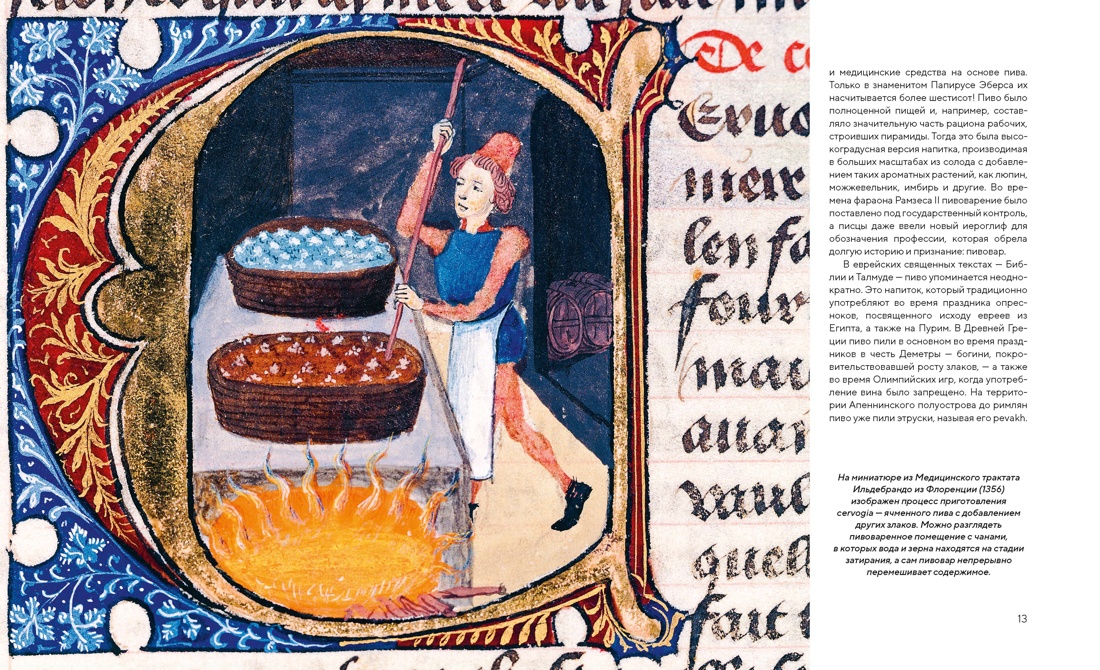 De
и медицинские средства на основе пива.
Только в знаменитом Папирусе Эберса их
насчитывается более шестисот! Пиво было
полноценной пищей и, например, состав-
ляло значительную часть рациона рабочих,
строивших пирамиды. Тогда это была высо-
коградусная версия напитка, производимая
в больших масштабах из солода с добавле-
нием таких ароматных растений, как люпин,
можжевельник, имбирь и другие. Во вре-
мена фараона Рамзеса II пивоварение было
поставлено под государственный контроль,
а писцы даже ввели новый иероглиф для
обозначения профессии, которая обрела
долгую историю и признание: пивовар.
В еврейских священных текстах — Биб-
лии и Талмуде — пиво упоминается неодно-
кратно. Это напиток, который традиционно
употребляют во время праздника опрес-
ноков, посвященного исходу евреев из
Египта, а также на Пурим. В Древней Гре-
ции пиво пили в основном во время празд-
ников в честь Деметры — богини, покро-
вительствовавшей росту злаков, — а также
во время Олимпийских игр, когда употреб-
ление вина было запрещено. На террито-
рии Апеннинского полуострова до римлян
пиво уже пили этруски, называя его pevakh.
На миниатюре из Медицинского трактата
Ильдебрандо из Флоренции (1356)
изображен процесс приготовления
cervogia — ячменного пива с добавлением
других злаков. Можно разглядеть
пивоваренное помещение с чанами,
в которых вода и зерна находятся на стадии
затирания, а сам пивовар непрерывно
перемешивает содержимое.
13